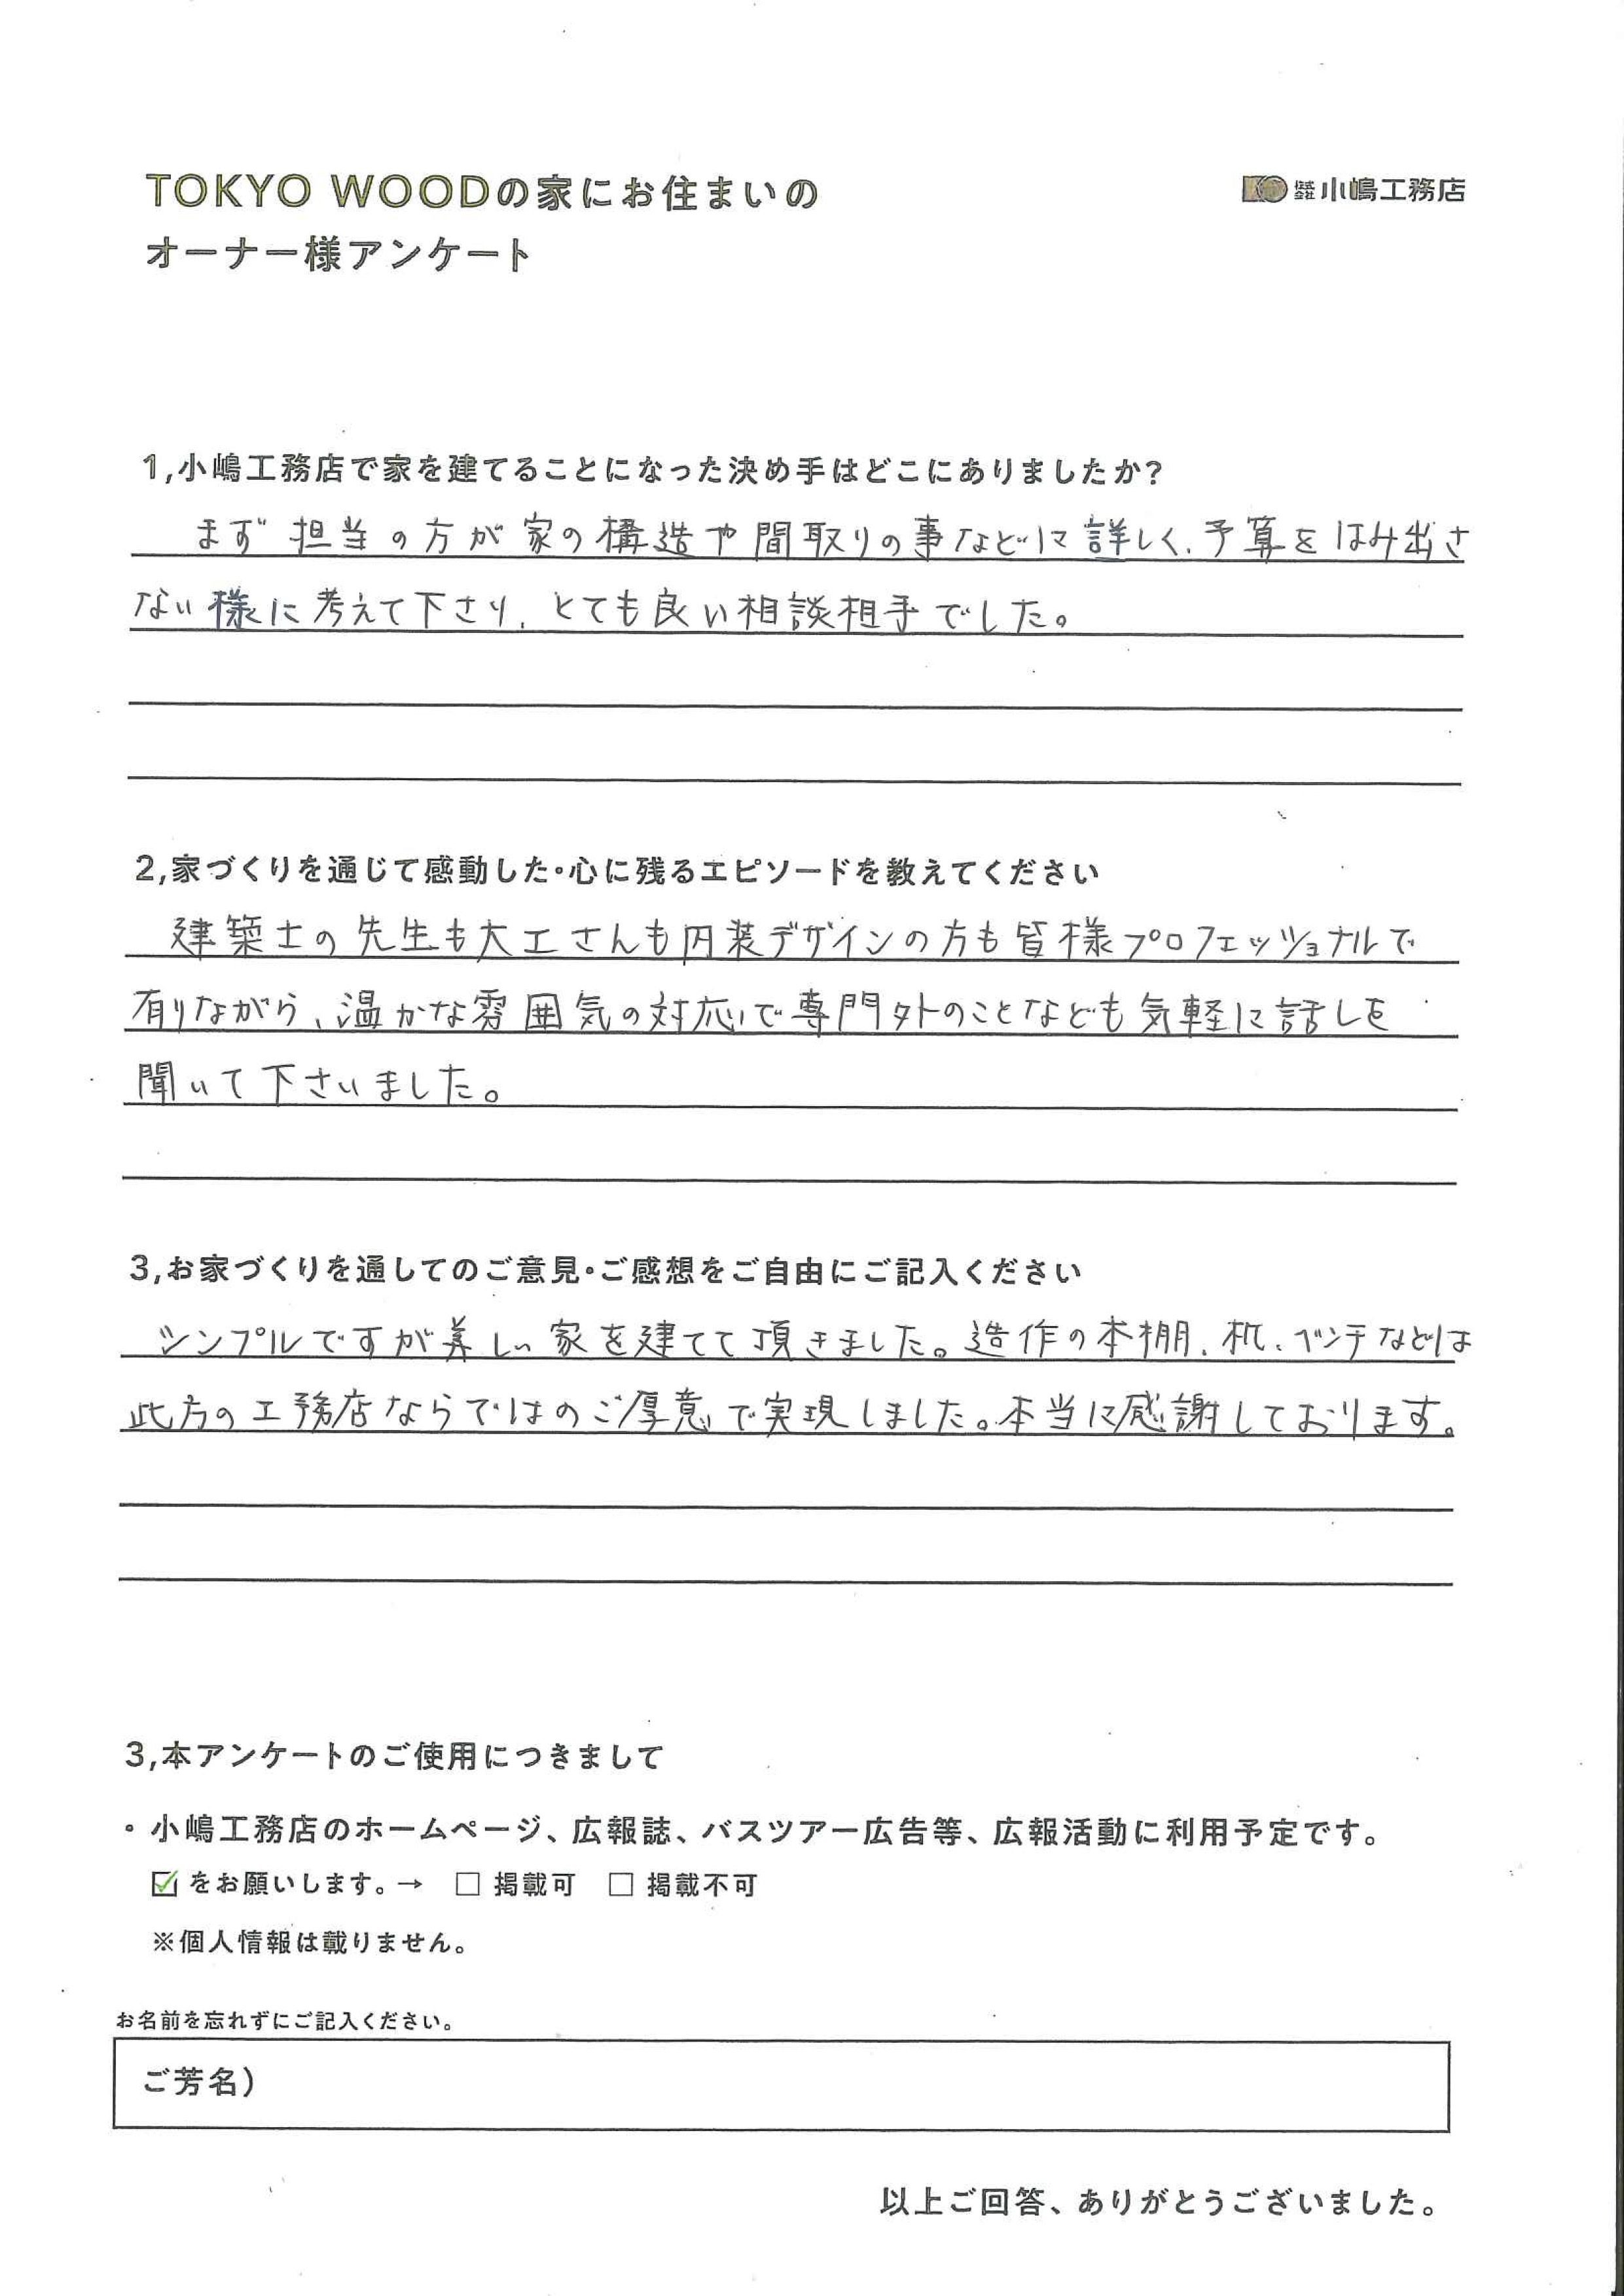 TOKYO WOODの家にお住まいの
オーナー様アンケート
株式会社 小嶋工務店
1,小嶋工務店で家を建てることになった決め手はどこにありましたか?
まず担当の方が家の構造や間取りの事などに詳しく、予算をはみ出さ
ない様に考えて下さり、とても良い相談相手でした。
2,家づくりを通じて感動した・心に残るエピソードを教えてください
建築士の先生も大工さんも内装デザインの方も皆様プロフェッショナルで
有りながら、温かな雰囲気の対応で専門外のことなども気軽に話しを
聞いて下さいました。
3,お家づくりを通してのご意見・ご感想をご自由にご記入ください
シンプルですが美しい家を建てて頂きました。造作の本棚、机、ベンチなどは
此方の工務店ならではのご厚意で実現しました。本当に感謝しております。
3,本アンケートのご使用につきまして
・小嶋工務店のホームページ、広報誌、バスツアー広告等、広報活動に利用予定です。
☑をお願いします。→ □ 掲載可 □ 掲載不可
※個人情報は載りません。
お名前を忘れずにご記入ください。
ご芳名)
以上ご回答、ありがとうございました。